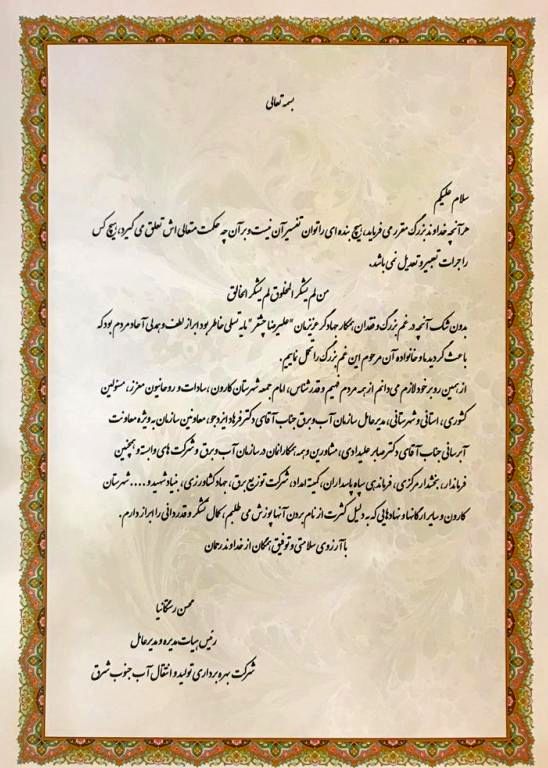 بسمه تعالی
سلام علیکم
هر آنچه خداوند بزرگ مقرر می فرماید، هیچ بنده ای را توان تفسیر آن نیست و بر آن چه حکمت متعالی اش تعلق می گیرد، هیچ کس
را جرات تعبیر و تعدیل نمی باشد.
من لم یشکر المخلوق لم یشکر الخالق
بدون شک آنچه در غم بزرگ و فقدان همکار جهادگر عزیزمان "علیرضا چشفر" مایه تسلی خاطر بود ابراز لطف و همدلی آحاد مردم بود که
باعث گردید ما و خانواده آن مرحوم این غم بزرگ را تحمل نماییم.
از همین رو بر خود لازم می دانم از همه مردم فهیم و قدرشناس، امام جمعه شهرستان کارون، سادات و روحانیون معزز، مسئولین
کشوری، استانی و شهرستانی، مدیرعامل سازمان آب و برق جناب آقای دکتر فرهاد ایزدجو، معاونین سازمان به ویژه معاونت
آبرسانی جناب آقای دکتر صابر علیدادی، مشاورین و همه همکارانمان در سازمان آب و برق و شرکت های وابسته و همچنین
فرماندار، بخشدار مرکزی، فرماندهی سپاه پاسداران، کمیته امداد، شرکت توزیع برق، جهاد کشاورزی، بنیاد شهید و .... شهرستان
کارون و سایر ارگانها و نهادهایی که به دلیل کثرت از نام بردن آنها پوزش می طلبم، کمال تشکر و قدردانی را ابراز دارم.
با آرزوی سلامتی و توفیق همگان از خداوند رحمان
محسن
رئیس هیات مدیره و مدیرعامل
شرکت بهره برداری تولید و انتقال آب جنوب شرق